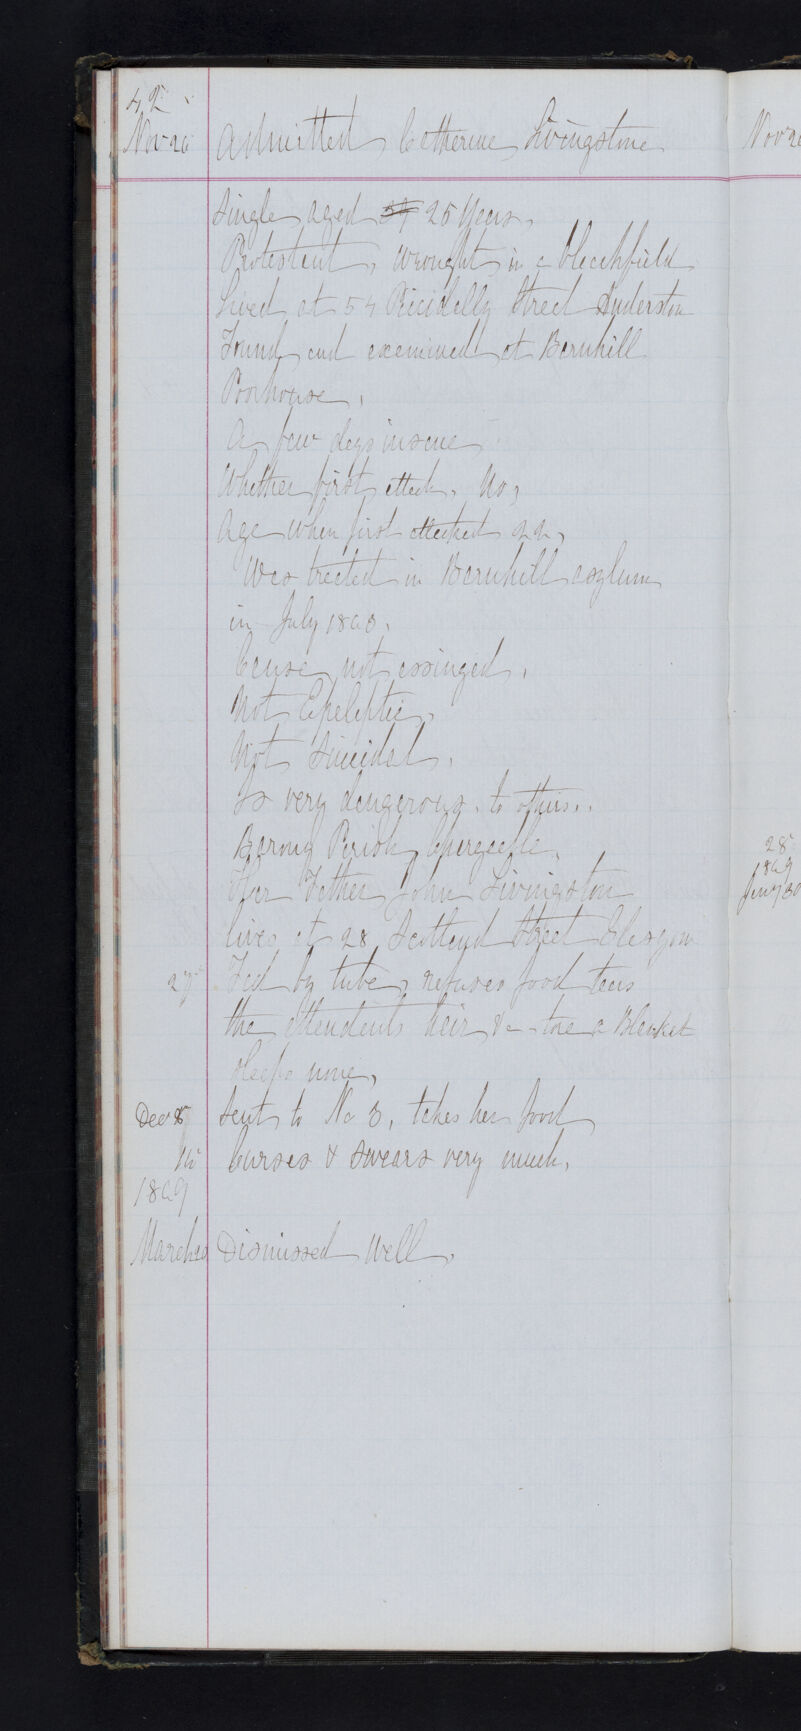 42
Nov 26 Admitted Catherine Livingstone
Single aged 25 Years,
Protestant, wrought in a bleachfield
Lived at 54 Picidally Street Anderston
Found and examined at Barnhill
Poorhouse,
A few days insane
Whether first attack, No,
Age when first attacked 22,
Was treated in Barnhill asylum
in July 18
Cause not assinged,
Not Epeleptic,
Not Suicidal,
Is very dangerous, to others,
Barony Parish Chargeable,
Her Father John Livingston
lives at 28 Scotland Street Glasgow
27 Fed by tube, refuses food tears
the attendants hair &c tore a Blanket
sleeps none,
Dec 8 Sent to No 3, takes her food
Curses & swears very much,
1869
March Dismissed Well,
Nov 2
28
1869